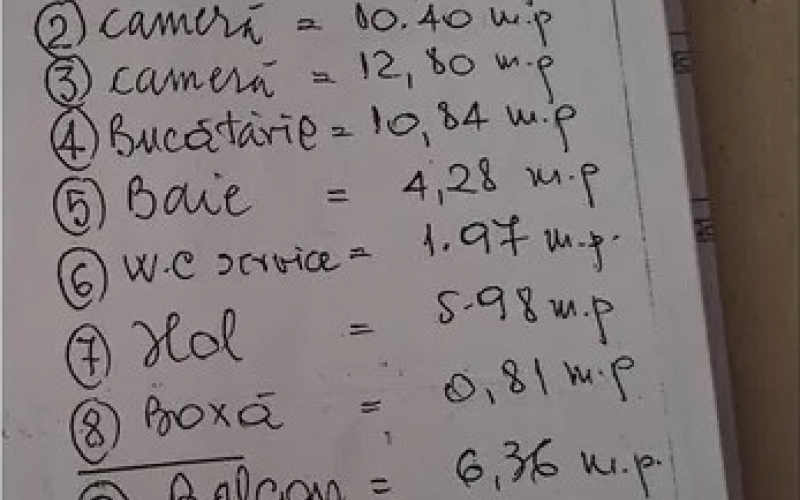 ② cameră = 10.40 m.p
③ cameră = 12,80 m.p
④ Bucătărie = 10,84 m.p
⑤ Baie = 4,28 m.p
⑥ W.C service = 1.97 m.p.
⑦ Hol = 5.98 m.p
⑧ Boxă = 0,81 m.p
Balcon = 6,36 m.p.